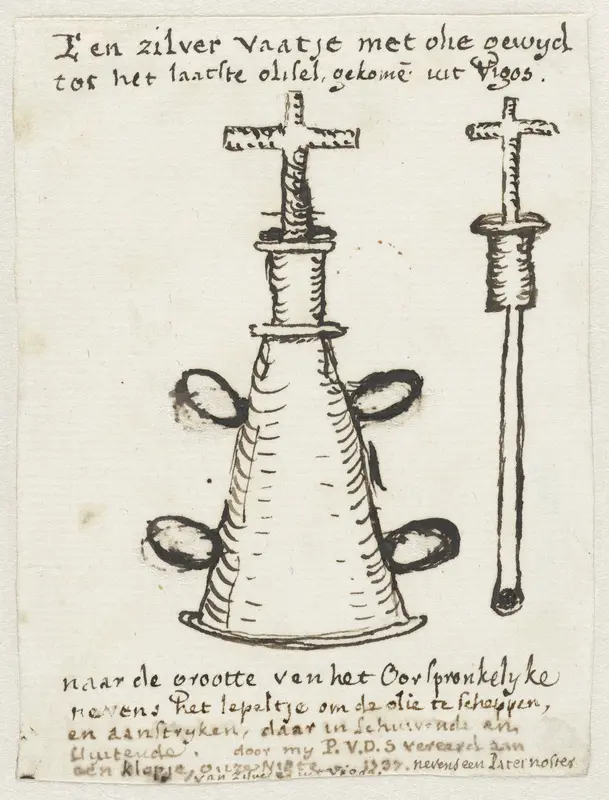 Een zilver vaatje met olie gewyd
tot het laatste olisel, gekomē uit Vigos.
naar de grootte van het Oorspronkelyke
nevens het lepeltje om de olie te scheppen,
en aanstryken, daar in schuivende en
sluitende. door my P.V.D.S vereerd aan
een klopje, onze Nigte 1737. nevens een Paternoster
van zilver